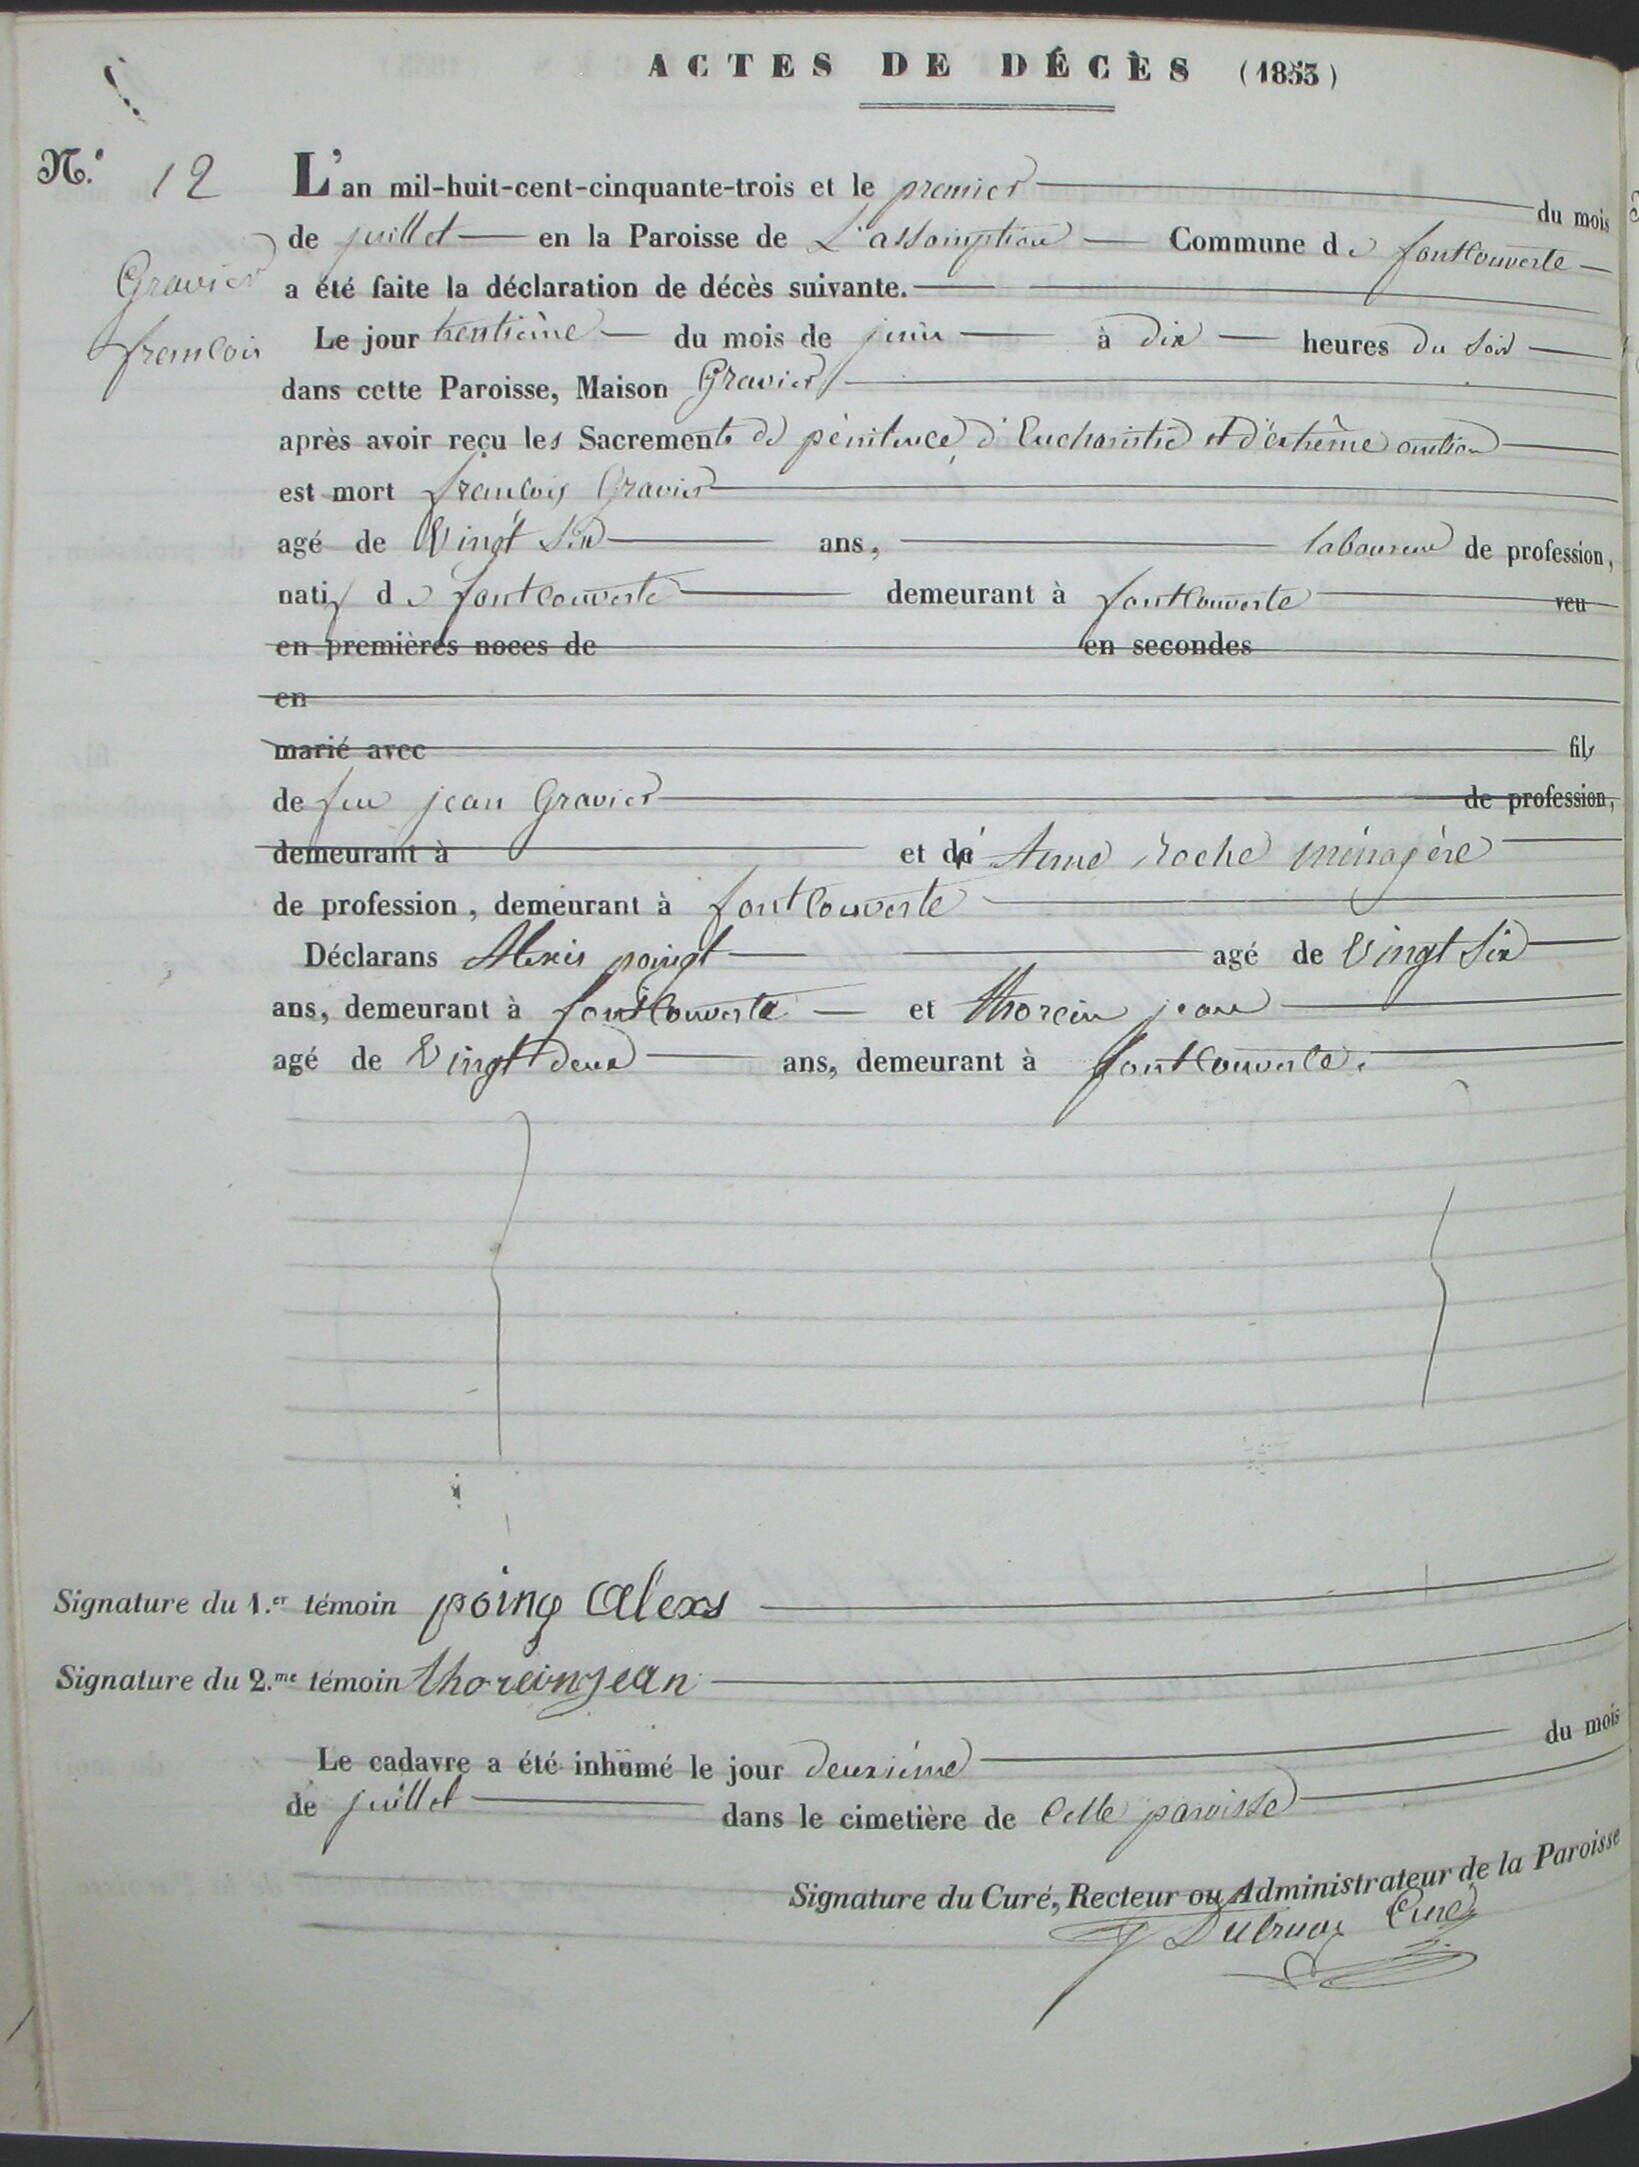 ACTES DE DÉCÈS (1853)
N.º 12 L'an mil-huit-cent-cinquante-trois et le premier du mois
de juillet en la Paroisse de L'assomption Commune de fontcouverte
Gravier
a été faite la déclaration de décès suivante.
francois
Le jour trentième du mois de juin à dix heures du soir
dans cette Paroisse, Maison Gravier
après avoir reçu les Sacrements de pénitence, d'Eucharistie et d'extrême onction
est mort francois Gravier
agé de vingt six ans, laboureur de profession,
natif de fontcouverte demeurant à fontcouverte veu
en premières noces de en secondes
en
marié avec fils
de feu jean Gravier de profession,
demeurant à et d' Anne roche ménagère
de profession, demeurant à fontcouverte
Déclarans Alexis poingt agé de vingt six
ans, demeurant à fontcouverte et thorein jean
agé de vingt deux ans, demeurant à fontcouverte.
Signature du 1.er témoin poing alexs
Signature du 2.me témoin thorein jean
Le cadavre a été inhumé le jour deuxième du mois
de juillet dans le cimetière de cette paroisse
Signature du Curé, Recteur ou Administrateur de la Paroisse
Curé